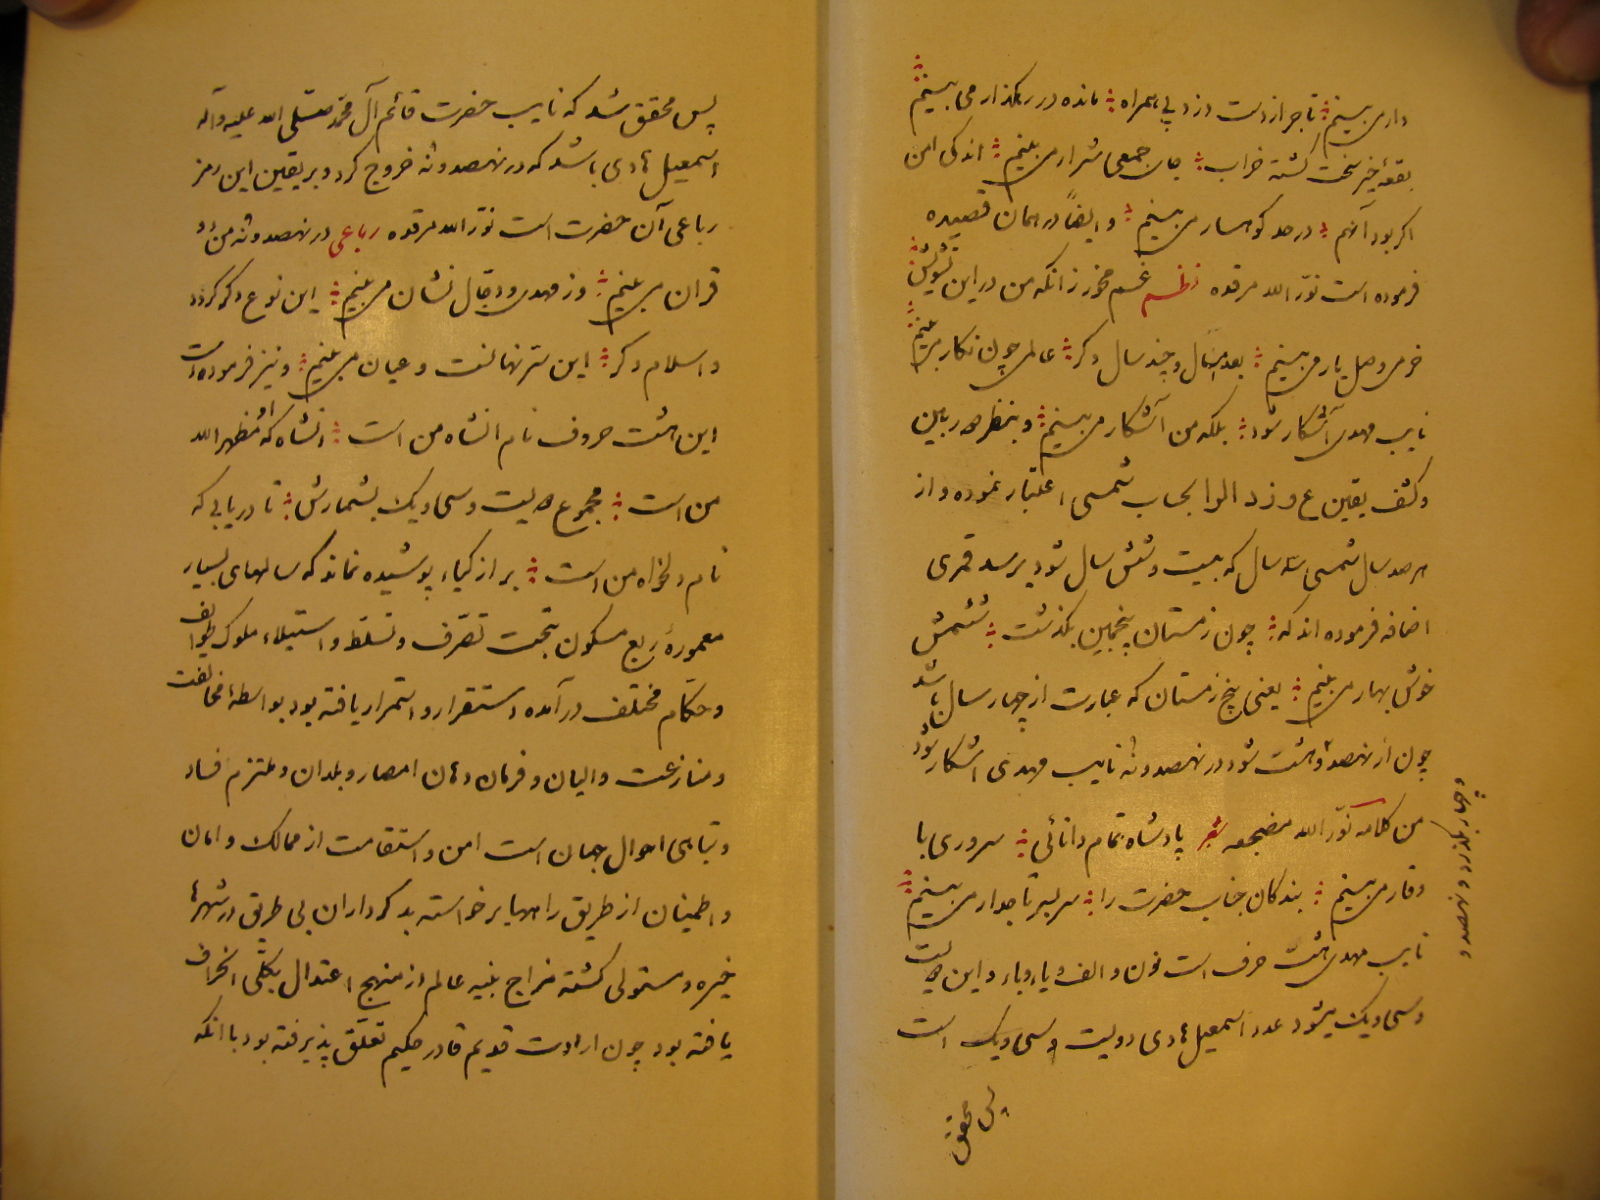 داری می بینم تاجر از دست دزد بی همراه مانده در رهگذار می بینم
بقعهٔ خیر سخت گشته خراب جای جمعی شرار می بینم اندکی امن
اگر بود آنهم در حد کوهسار می بینم و ایضاً در همان قصیده
فرموده است نوّر الله مرقده نظم غم مخور زانکه من در این تشویش
خرمی وصل یار می بینم بعد امسال و چند سال دکر عالمی چون نکار می بینم
نایب مهدی آشکار شود بلکه من آشکار می بینم و بنظر
و کشف یقین ع و ز د الرا بحساب شمسی اعتبار نموده و از
هر صد سال شمسی سه سال که بیست و شش سال شود بر سد قمری
اضافه فرموده اند که چون زمستان پنجمین بگذشت ششمش
خوش بهار می بینم یعنی پنج زمستان که عبارت از چهار سال باشد
چون از نهصد و هشت شود در نهصد و نه نایب مهدی اشکار شود
من کلامه نوّر الله مضجعه شعر پادشاه تمام دانائی سروری با
وقار می بینم بندکان جناب حضرت را سر بسر تاجدار می بینم
نایب مهدی هشت حرف است نون و الف و یا و با و این
و سی و یک میشود عدد اسمعیل هادی دویست و سی و یک است
و چهار بگذرد و نهصد و
پس محقق
پس محقق شد که نایب حضرت قائم آل محمّد صلّی الله علیه و آله
اسمعیل هادی باشد که در نهصد و نه خروج کرد و بر یقین این رمز
رباعی آن حضرت است نوّر الله مرقده رباعی در نهصد و نه من دو
قران می بینم وز مهدی و دجال نشان می بینم این نوع دکر کردد
و اسلام دکر این سرّ نهانست و عیان می بینم و نیز فرموده است
این هشت حروف نام انشاه من است انشاه که او مظهر الله
من است مجموع دویست و سی و یک بشمارش تا دریابی که
نام دلخواه من است بر ازکیاء پوشیده نماند که سالهای بسیار
معمورهٔ ربع مسکون بتحت تصرّف و تسلّط و استیلاء ملوک طوایف
و حکّام مختلف درآمده استقرار و استمرار یافته بود بواسطهٔ مخالفت
و منازعت والیان و فرمان دهان امصار و بلدان و ملتزم فساد
و تباهی احوال جهان است امن و استقامت از ممالک و امان
و اطمینان از طریق راهها برخواسته بد کرداران بی طریق در شهرها
خیره و مستولی کشته مزاج بنیه عالم از منهج اعتدال بکلّی انحراف
یافته بود چون ارادت قدیم قادر حکیم تعلّق پذیرفته بود با انکه